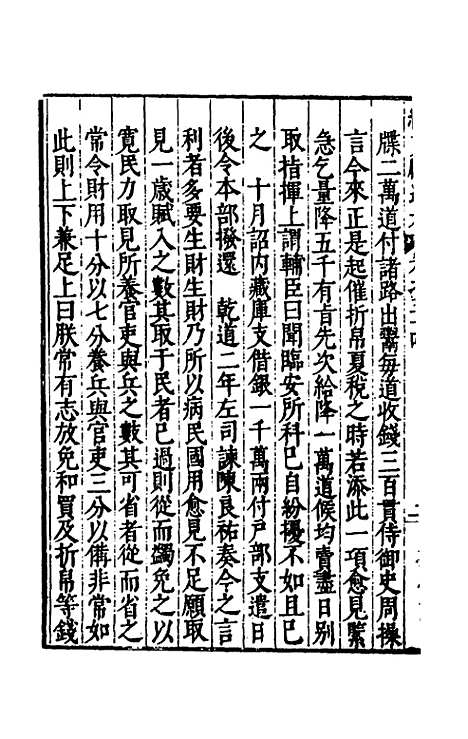 牒二萬道付諸路出鬻每道收錢三百貫侍御史周操
言今來正是起催折帛夏稅之時若添此一項愈見緊
急乞量降五千有首先次給降一萬道候均賣盡日別
取指揮上謂輔臣曰聞臨安所科已自紛擾不如且已
之　十月詔內藏庫支借銀一千萬兩付戶部支遣日
後令本部撥還　乾道二年左司諫陳良祐奏今之言
利者多要生財生財乃所以病民國用愈見不足願取
見一歲賦入之數其取于民者已過則從而蠲免之以
寬民力取見所養官吏與兵之數其可省者從而省之
常令財用十分以七分養兵與官吏三分以備非常如
此則上下兼足上曰朕常有志放免和買及折帛等錢